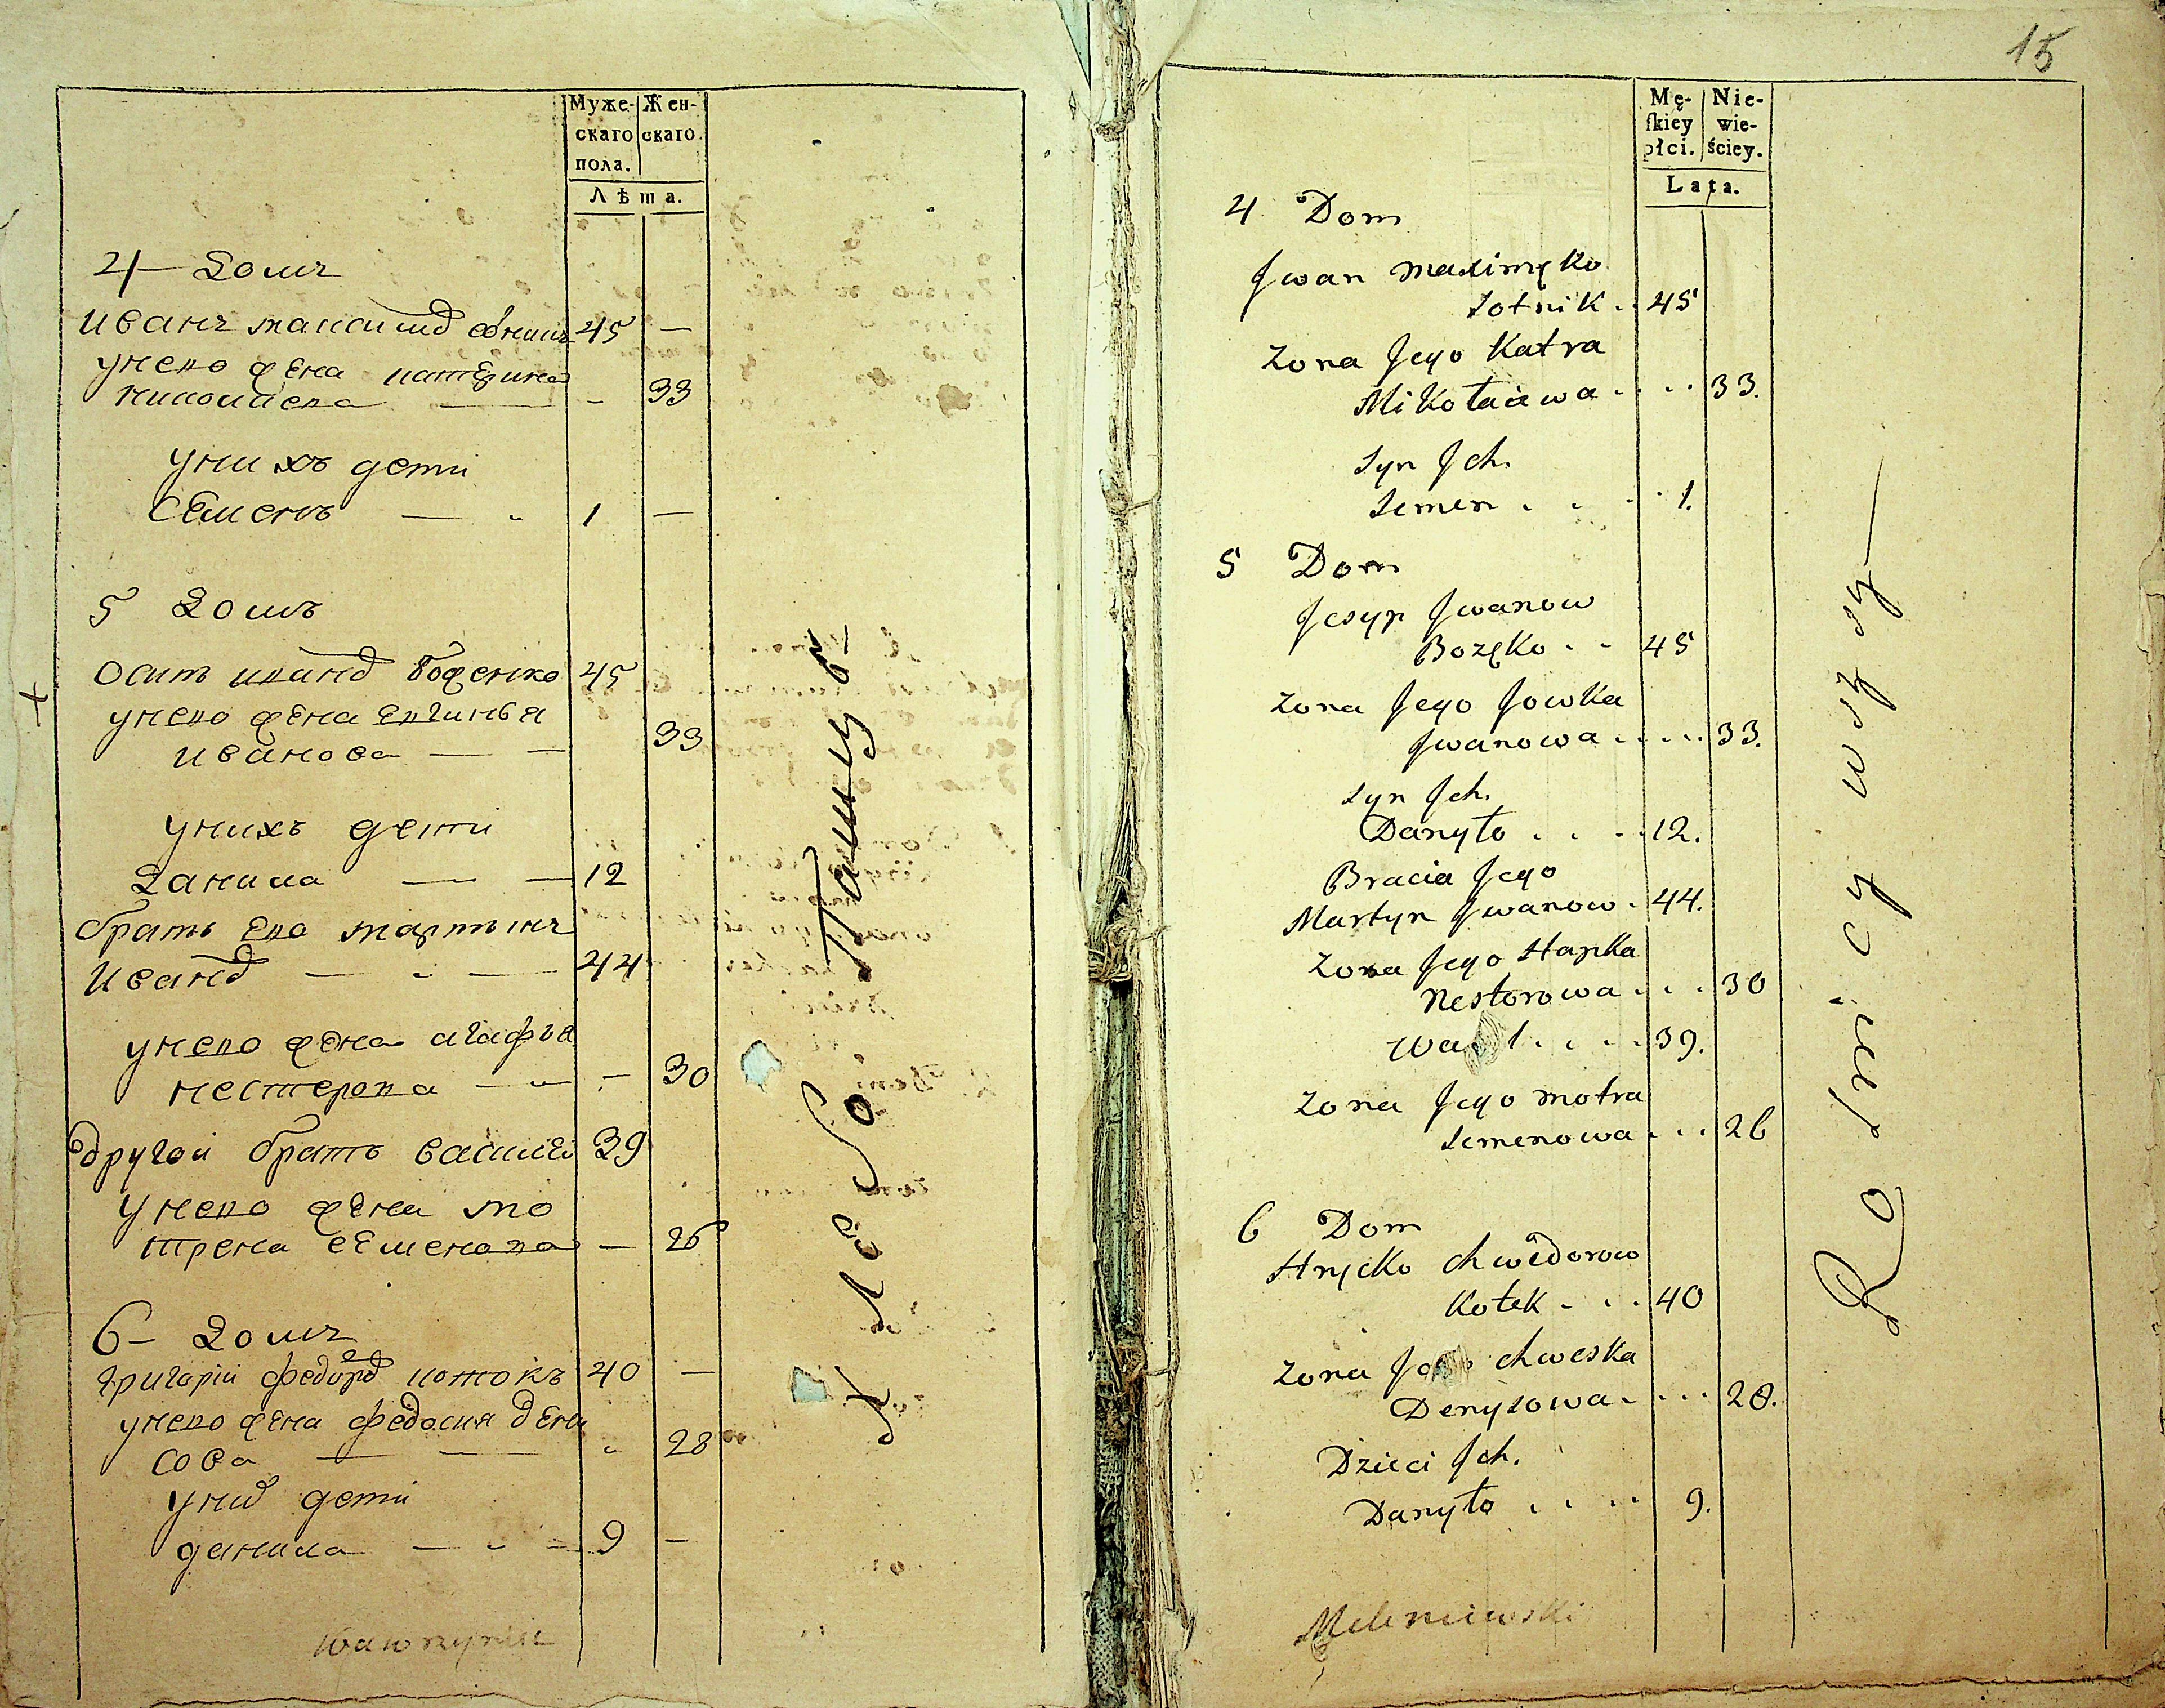 Муже-
скаго
пола.
Жен-
скаго.
Лѣта.
4 — Домъ
Иванъ максимо 45 —
унево жена катерина
николаева — — 33
унихъ дети
Семенъ — 1 —
5 Домъ
Осипъ иванов боженко 45
унево жена евгинья
иванова — — 33
унихъ дети
Данила — — 12
братъ ево мартинъ
Иванов — — 44
унево жена агафья
нестерова — — — 30
другой братъ василей 39
унево жена мо
трена семенова — 26
6 — Домъ
григорий федоров котокъ 40 —
унево жена федосия дени
сова — — — 28
уних дети
данила — — — 9 —
Хлебо Пашцы
Wawrzyniec
15
Mę-
ſkiey
płci.
Nie-
wie-
ściey.
Lata.
4 Dom
Jwan Maximęko
Zotnik . . 45
Zona Jego Katra
Mikołaiewa . . . . 33.
Syn Jch.
Semen . . . . 1.
5 Dom
Josyp Jwanow
Bozęko . . 45
Zona Jego Jowka
Jwanowa . . . . . 33.
Syn Jch.
Danyło . . . . 12.
Bracia Jego
Martyn Jwanow . 44.
Zona Jego Hapka
Nestorowa . . . . 30
. . . . 39.
Zona Jego Motra
Semenowa . . . 26
6 Dom
Hryćko Chwedorow
Kotek . . . 40
Zona Jego Chweska
Denysowa . . . . 28.
Dzieci Jch.
Danyło . . . . 9.
Rolnicy wszysy